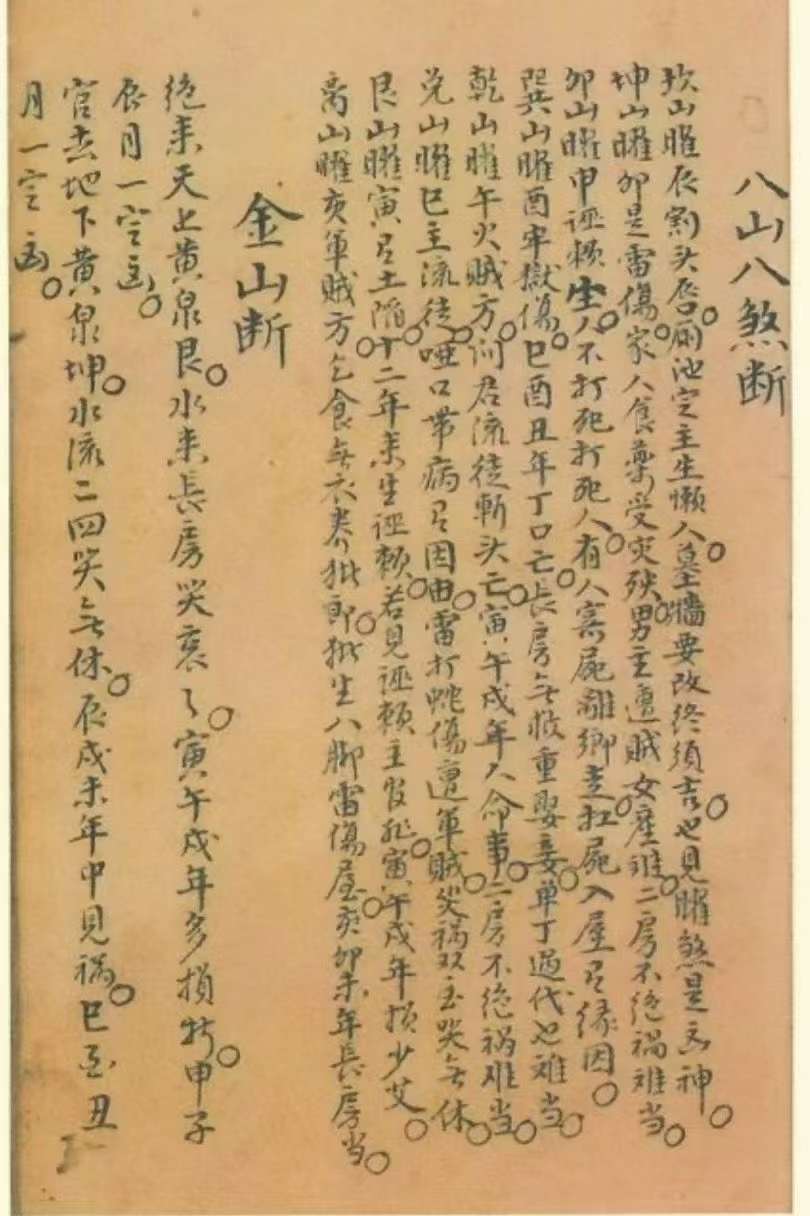 八山八煞断
坎山曜辰割头唇。厕池定主生懒人。墓墙要改终须吉。也见曜煞是凶神。
坤山曜卯是雷傷。家人食藥受灾殃。男主遭贼女産难。二房不绝禍难当。
卯山曜申诬赖生。人不打死打死人。有人害屍離鄉走。扛屍入屋是缘因。
巽山曜酉牢獄傷。巳酉丑年丁口亡。長房無救重娶妾。单丁過代也难当。
乾山曜午火贼方。问君流徒斬头亡。寅午戌年人命事。二房不绝禍难当。
兑山曜巳主流徒。哑口带病是因由。雷打蛇傷遭軍贼。災禍双至哭無休。
艮山曜寅是土陷。十二年来生诬赖。若见诬赖主官非。寅午戌年損少艾。
离山曜亥軍贼方。乞食無衣养批郎。批生八脚雷傷屋。亥卯未年長房当。
金山断
绝来天上黄泉艮。水来長房哭哀哀。寅午戌年多損折。申子
辰月一定凶。
官去地下黄泉坤。水流二四哭無休。辰戌未年中见禍。巳酉丑
月一定凶。